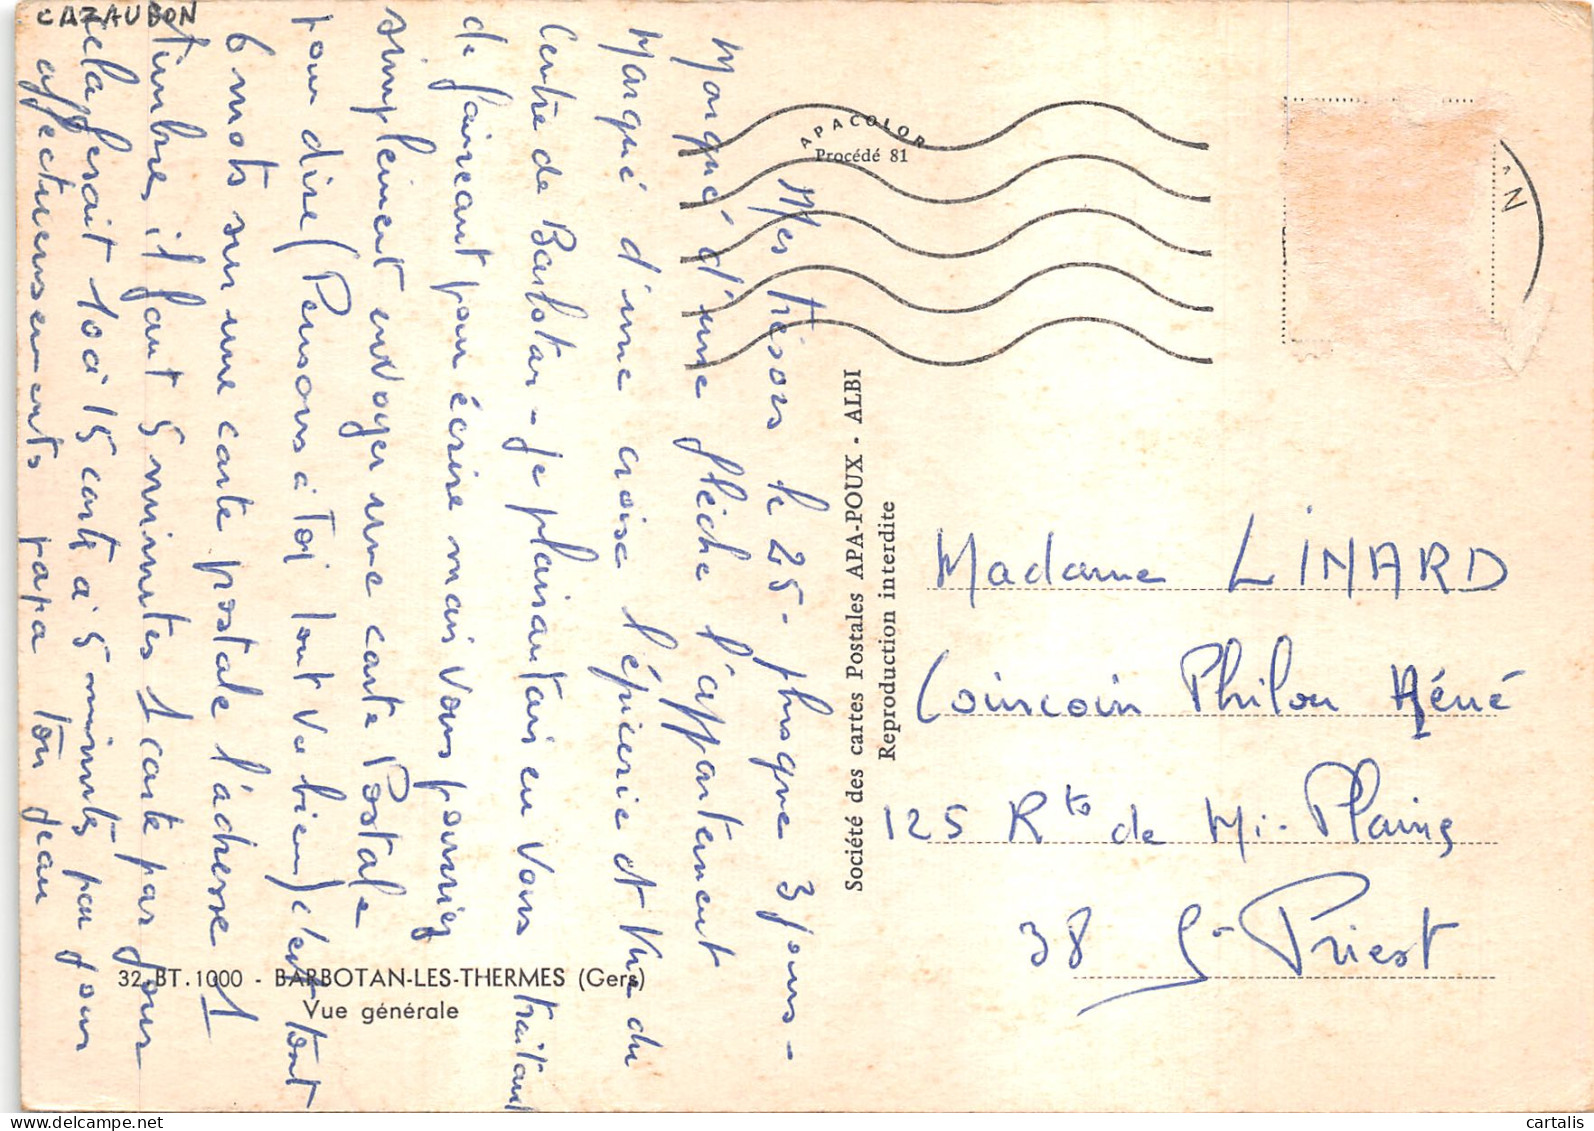 CAZAUBON
Mes trésors le 25 - plusque 3 jours -
Marqué d'une flèche l'appartement
Marqué d'une croix l'épicerie et Vue du
Centre de Barbotan - je plaisantais en vous traitant
de fainéant pour écrire mais vous pourriez
simplement envoyer une carte Postale
pour dire (Pensons à Toi tout va bien) c'est tout
6 mots sur une carte postale l'adresse 1
timbre, il faut 5 minutes 1 carte par jour
cela ferait 10 à 15 carte à 5 minutes par jour
affectueusements papa ton jean
APACOLOR
Procédé 81
Société des cartes Postales APA-POUX - ALBI
Reproduction interdite
N
Madame LINARD
Coincoin Philou Néné
125 Rte de Mi-Plaine
38 St Priest
32.BT.1000 - BARBOTAN-LES-THERMES (Gers)
Vue générale
cartalis